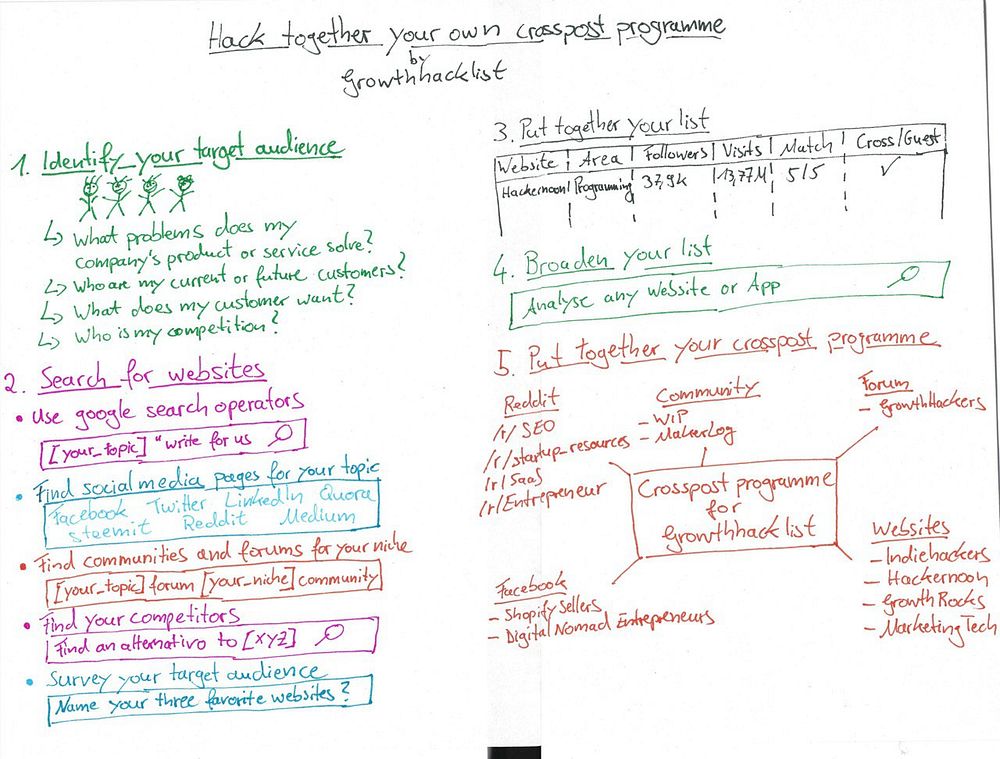 Hack together your own crosspost programme
by
Growthhacklist
1. Identify your target audience
↳ What problems does my
company's product or service solve?
↳ Who are my current or future customers?
↳ What does my customer want?
↳ Who is my competition?
2. Search for websites
• Use google search operators
[your_topic] "write for us
• Find social media pages for your topic
Facebook Twitter LinkedIn Quora
steemit Reddit Medium
• Find communities and forums for your niche
[your_topic] forum [your_niche] community
• Find your competitors
Find an alternativo to [XYZ]
• Survey your target audience
Name your three favorite websites?
3. Put together your list
Website | Area | Followers | Visits | Match | Cross/Guest
Hackernoon | Programming | 37,9k | 13,77M | 5/5 | ✓
4. Broaden your list
Analyse any website or App
5. Put together your crosspost programme
Reddit
/r/SEO
/r/startup_resources
/r/SaaS
/r/Entrepreneur
Community
- WIP
- MakerLog
Forum
- GrowthHackers
Crosspost programme
for
Growthhacklist
Facebook
- Shopify Sellers
- Digital Nomad Entrepreneurs
Websites
- Indiehackers
- Hackernoon
- Growth Rocks
- MarketingTech